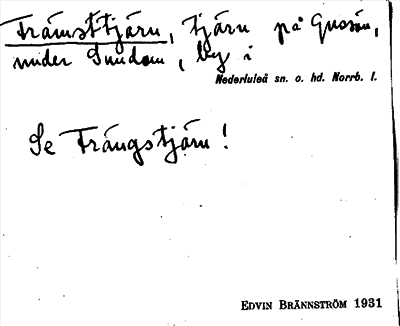 Trämsttjärn, tjärn på Gussön,
under Sundom, by i
Nederluleå sn. o. hd. Norrb. l.
Se Trängstjärn!
EDVIN BRÄNNSTRÖM 1931